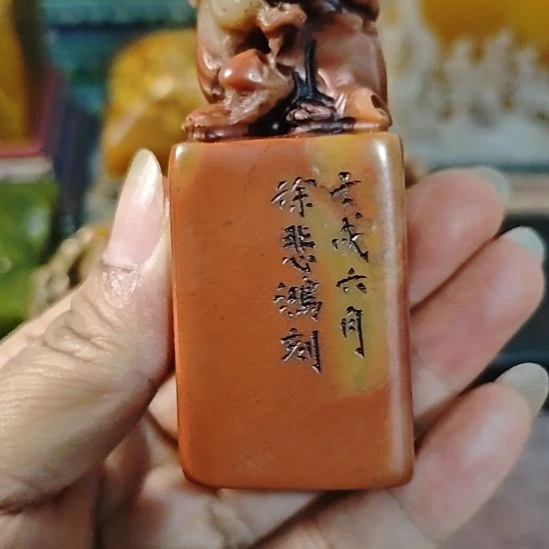 壬戌六月
徐悲鴻刻